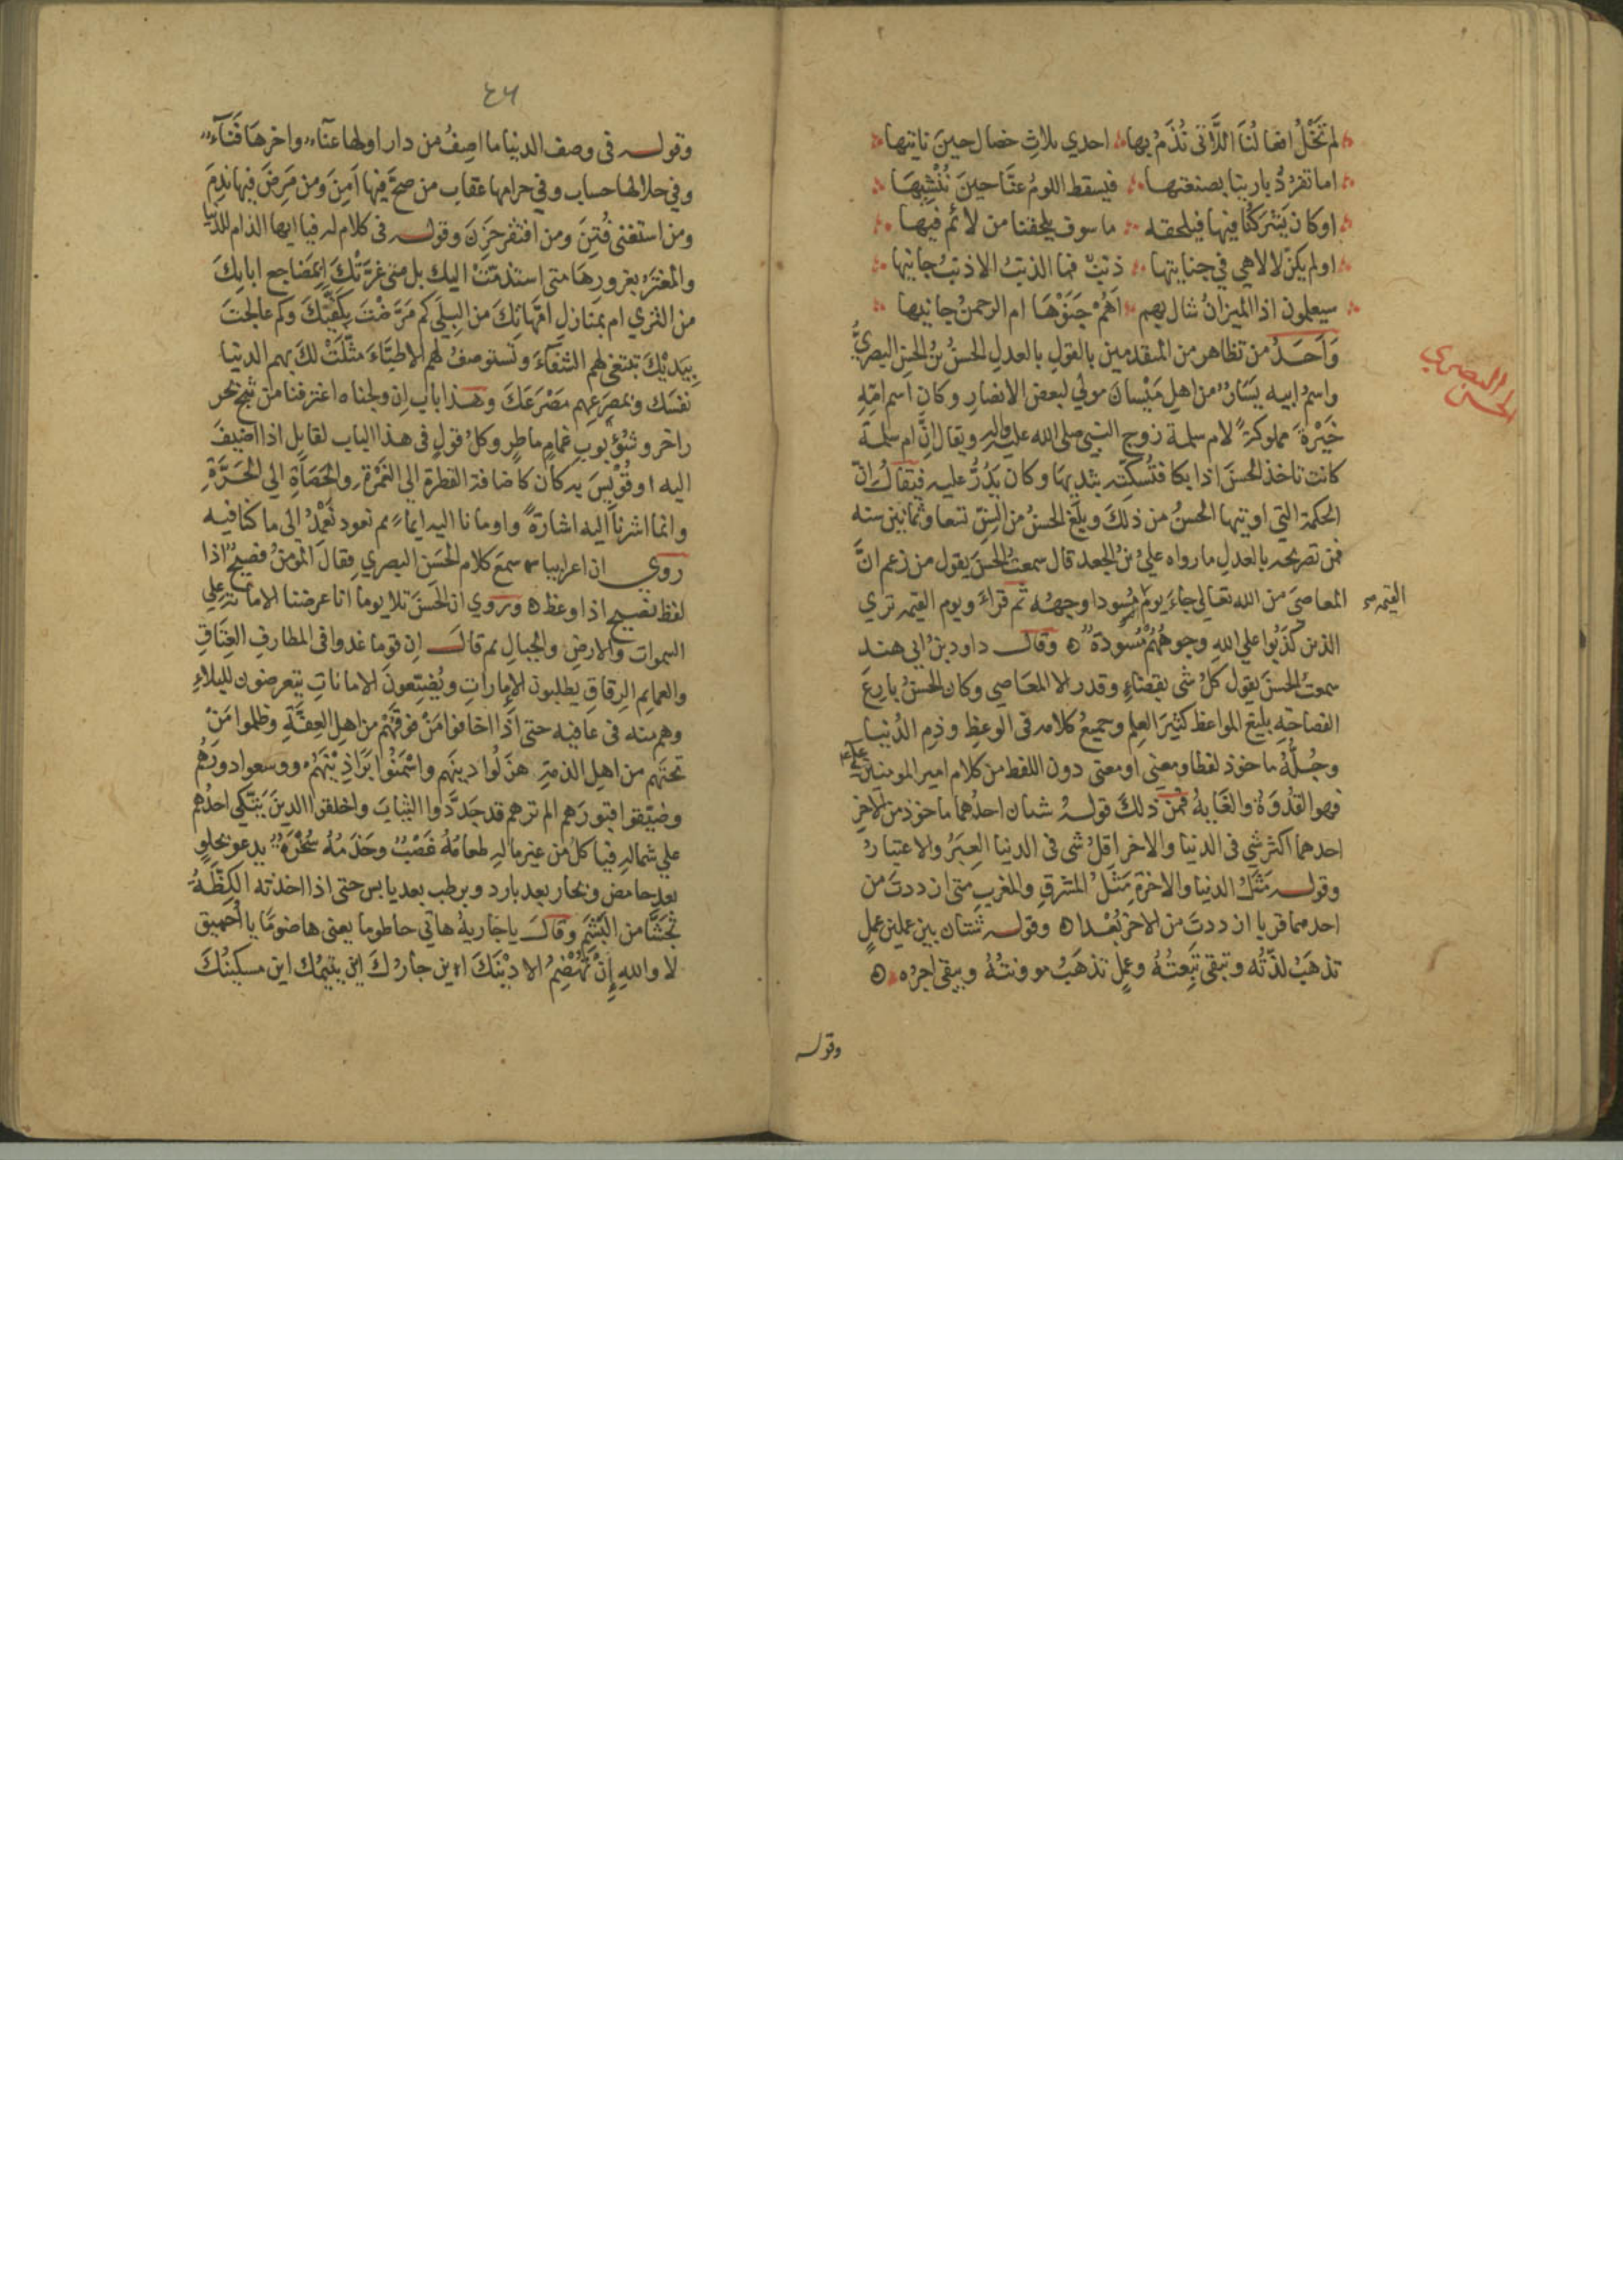 لم تَخْلُ افعالُنَا اللَّاتى نُذَمُّ بها احدي ثلاثِ خصال حينَ ناتيها
اما تفرُّدُ بارينا بصنعتها فيسقط اللومُ عنَّا حينَ نُنْشِيهَا
او كان يَشْرَكُنَا فيها فيلحقه ما سوف يلحقنا من لائمٍ فيها
او لم يكن لالاهي في جنايتها ذنبٌ فما الذنبُ الا ذنبُ جانيها
سيعلمون اذا الميزانُ شال بهم اَهُمْ جَنَوْهَا ام الرحمنُ جانيها
وَاَحَدُ من تظاهر من المتقدمين بالقولِ بالعدلِ الحسنُ بنُ الحسنِ البصريُّ
الحسن البصري
واسمُ ابيه يَسَارٌ من اهلِ مَيْسانَ مولي لبعض الانصارِ وكان اسم امّه
خَيْرةَ مملوكةً لام سلمة زوج النبي صلى الله عليه واله ويقال انَّ ام سلمة
كانت تاخذ الحسنَ اذا بكا فتُسكته بثديها وكان يَدُرُّ عليه فيقالُ انّ
الحكمة التي اوتيها الحسنُ من ذلكَ وبلغ الحسنُ من السنِّ تسعا وثمانين سنه
فمن تصريحه بالعدلِ ما رواه عليُ بنُ الجعد قال سمعتُ الحسنَ يقول من زعم انَّ
المعاصيَ من الله تعالي جاءَ يومَ القيمه مُسودا وجهُه ثم قراءَ ويوم القيمه تري
الذين كذَبُوا علي اللهِ وجوههُمْ مُسْوَدّةٌ وقال داود بنُ ابي هند
سمعتُ الحسنَ يقول كلُ شى بقضاءٍ وقدرٍ الا المعَاصي وكان الحسنُ بارعَ
الفصاحةِ بليغ المواعظ كثيرَ العِلمِ وجميعُ كلامه فى الوعظِ وذم الدُنيا
وجُلُّهُ ماخوذ لفظا ومعنى او معنى دون اللفظ من كلام امير المومنين
فهو القُدْوَةُ والغَايةُ فمن ذلكَ قولهُ شيان احدُهما ماخوذ من الاخرِ
احدهما اكثر شي فى الدنيا والاخر اقلُ شى فى الدنيا العِبَرُ والاعتبارُ
وقوله مَثَلُ الدنيا والاخرةِ مَثَلُ المشرقِ والمغربِ متى ازددتَ من
احدهما قربا ازددتَ من الاخرِ بُعْدا وقوله شتان بين عملين عملٍ
تذهبُ لذّتُه وتبقى تَبِعتُهُ وعملٍ تذهَبُ موونتُهُ ويبقى اجرُه
وقوله
٤٦
وقوله فى وصف الدنيا ما اصِفُ من دار اولها عناءٌ واخرهَا فَنَاءٌ
وفي حلالها حساب وفي حرامها عقاب من صحَّ فيها اَمِنَ ومن مَرِضَ فيها نَدِمَ
ومن استغنى فُتِنَ ومن افتقر حَزِنَ وقوله فى كلام له فيا ايها الذام للدنيا
والمُغترُ بغرورهَا متى استذمّتْ اليك بل متى غرَّتْكَ اَبِمَضَاجع ابائِكَ
من الثري ام بمَنازلِ امّهاتِكَ من البِلَى كم مَرَّضْتَ بِكَفَّيْكَ وكم عالجتَ
بيَديْكَ تبتغى لهم الشفَاءَ وتستوصفُ لهم الاطبَّاءَ مثَّلَتْ لكَ بهم الدنيا
نفسَك وبمصرَعِهم مَصْرَعَكَ وهذا باب اِن ولجناه اغترفنا من ثبج بحر
زاخر وشُؤْبوبِ غمامٍ ماطرٍ وكلُ قولٍ فى هذا الباب لقايل اذا اضيفَ
اليه او قُوْيِسَ به كان كاضافة القطرةِ الى الغَمْرَةِ والحَصَاةِ الى الحَرَّةِ
وانما اشرنا اليه اشارةً واومانا اليه ايماءً ثم نعود نَعْمِدُ الى ما كنا فيه
رُوي ان اعرابيا سمعَ كلام الحَسَنِ البصري فقالَ المؤمنُ فصيحٌ اذا
لفظ نصيح اذا وعظ ورُوي ان الحَسنَ تلا يوما انا عرضنا الامانة علي
السموات والارضِ والجبالِ ثم قالَ اِن قوما غدوا فى المطارفِ العِتَاقِ
والعمايمِ الرِقاقِ يطلبون الاِماراتِ ويُضيّعونَ الاماناتِ يتعرضون للبلاءِ
وهم منه فى عافيه حتى اذا اخافوا مَنْ فوقَهُمْ من اهلِ العِفَّةِ وظلموا مَنْ
تحتَهم من اهلِ الذمةِ هزَلُوا دينَهم واسْمَنُوا بَرَاذِيْنَهُمْ ووسَعوا دورَهُم
وضيّقوا قبورَهم الم ترهم قد جَدَّدوا الثيابَ واخلقوا الدينَ يَتَّكِي احدُهم
علي شماله فياكل من غير ماله طعامُهُ غَصْبٌ وخَدَمُهُ سُخْرَةٌ يدعو بحلوٍ
بعد حامض وبحار بعد بارد وبرطب بعد يابس حتى اذا اخذته الكِظَّةُ
تَجَشَّا من البَشَمِ وقالَ يا جَاريةُ هاتى حاطوما يعنى هاضومًا يا اُحَيْمق
لا واللهِ إِنْ تَهْضِمُ الا دِيْنَكَ اين جارُكَ اين يتيمُك اين مسكينُكَ